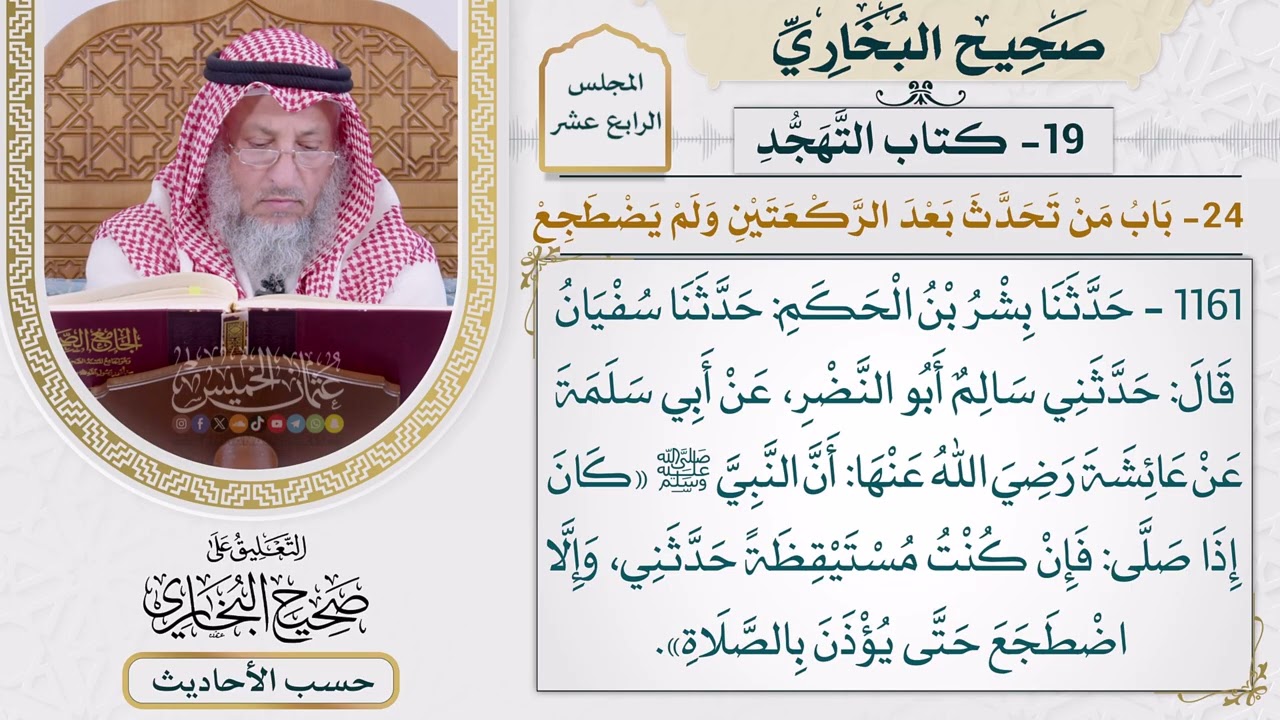 صَحِيح البُخَارِيِّ
المجلس
الرابع عشر
19- كتاب التَّهَجُّدِ
24- بَابُ مَنْ تَحَدَّثَ بَعْدَ الرَّكْعَتَيْنِ وَلَمْ يَضْطَجِعْ
1161 - حَدَّثَنَا بِشْرُ بْنُ الْحَكَمِ: حَدَّثَنَا سُفْيَانُ
قَالَ: حَدَّثَنِي سَالِمٌ أَبُو النَّضْرِ، عَنْ أَبِي سَلَمَةَ
عَنْ عَائِشَةَ رَضِيَ اللهُ عَنْهَا: أَنَّ النَّبِيَّ ﷺ «كَانَ
إِذَا صَلَّى: فَإِنْ كُنْتُ مُسْتَيْقِظَةً حَدَّثَنِي، وَإِلَّا
اضْطَجَعَ حَتَّى يُؤْذَنَ بِالصَّلَاةِ».
عُثمان الخميس
التَّعْلِيقُ عَلَى
صَحِيح البُخَارِي
حسب الأحاديث